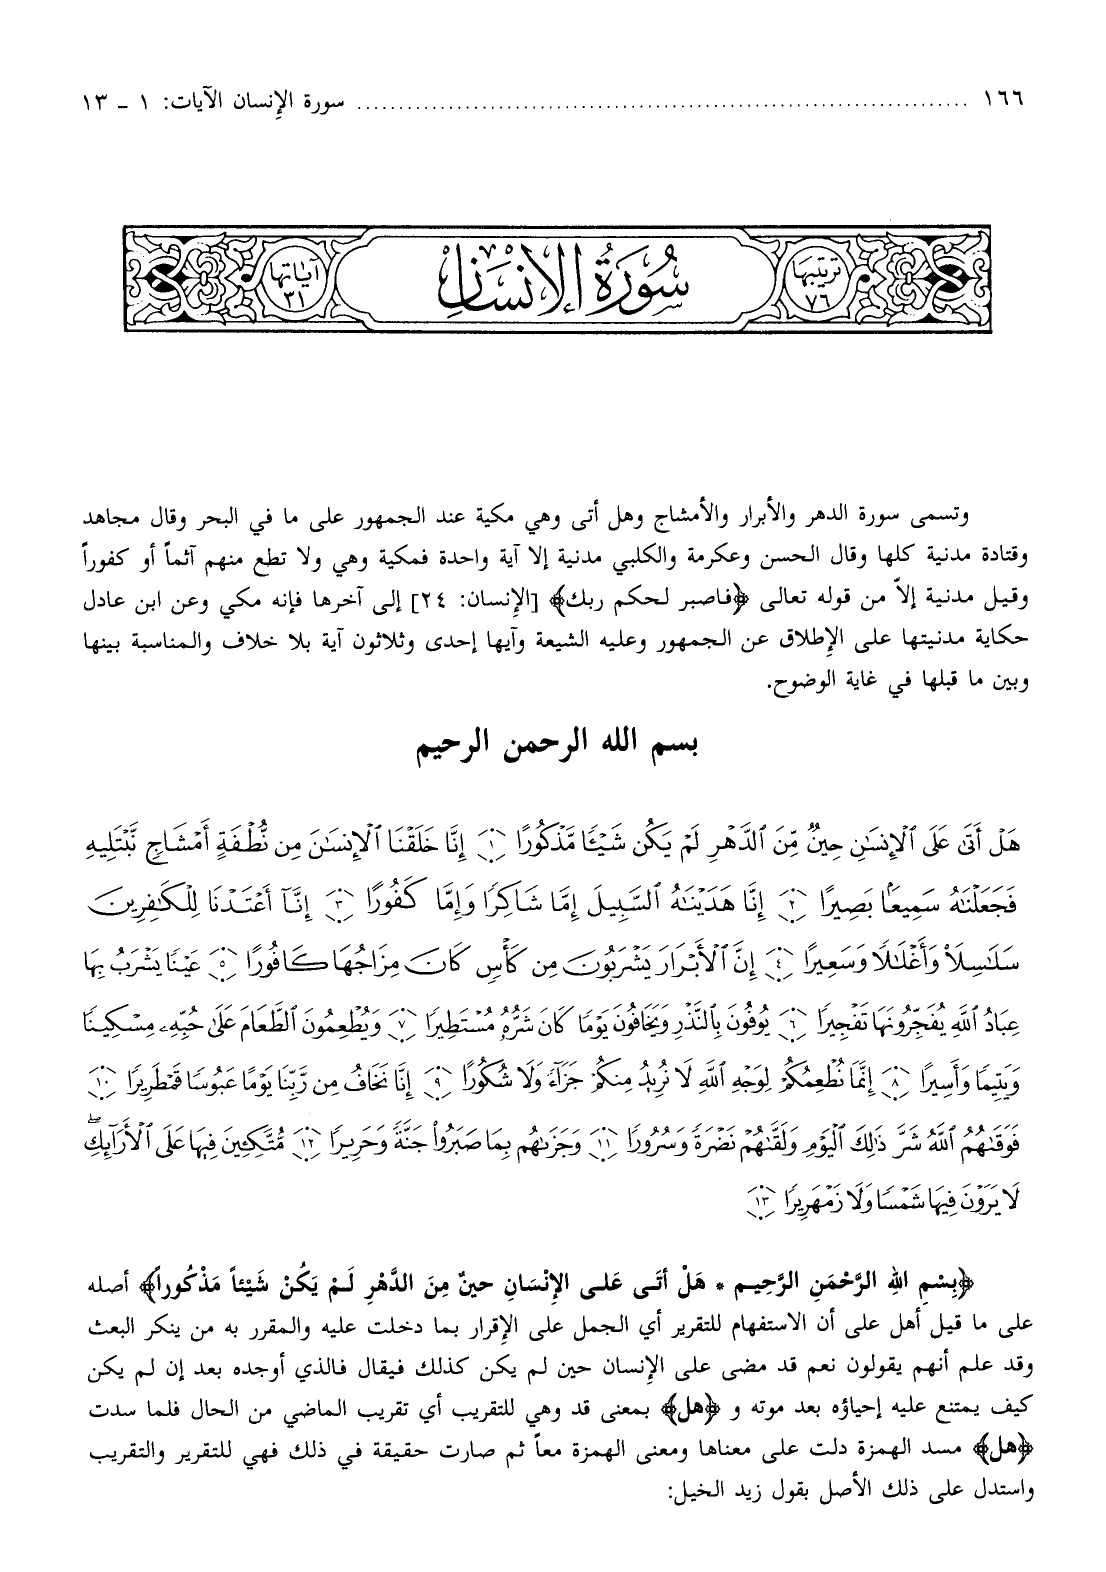 ١٦٦ ........................................ سورة الإنسان الآيات: ١ ـ ١٣
ترتيبها ٧٦ سُورَةُ الإِنسَانِ آياتها ٣١
وتسمى سورة الدهر والأبرار والأمشاج وهل أتى وهي مكية عند الجمهور على ما في البحر وقال مجاهد
وقتادة مدنية كلها وقال الحسن وعكرمة والكلبي مدنية إلا آية واحدة فمكية وهي ولا تطع منهم آثماً أو كفوراً
وقيل مدنية إلاّ من قوله تعالى ﴿فاصبر لحكم ربك﴾ [الإنسان: ٢٤] إلى آخرها فإنه مكي وعن ابن عادل
حكاية مدنيتها على الإطلاق عن الجمهور وعليه الشيعة وآيها إحدى وثلاثون آية بلا خلاف والمناسبة بينها
وبين ما قبلها في غاية الوضوح.
بسم الله الرحمن الرحيم
هَلْ أَتَىٰ عَلَى ٱلْإِنسَٰنِ حِينٌ مِّنَ ٱلدَّهْرِ لَمْ يَكُن شَيْـًٔا مَّذْكُورًا ﴿١﴾ إِنَّا خَلَقْنَا ٱلْإِنسَٰنَ مِن نُّطْفَةٍ أَمْشَاجٍ نَّبْتَلِيهِ
فَجَعَلْنَٰهُ سَمِيعًۢا بَصِيرًا ﴿٢﴾ إِنَّا هَدَيْنَٰهُ ٱلسَّبِيلَ إِمَّا شَاكِرًا وَإِمَّا كَفُورًا ﴿٣﴾ إِنَّآ أَعْتَدْنَا لِلْكَٰفِرِينَ
سَلَٰسِلَا۟ وَأَغْلَٰلًا وَسَعِيرًا ﴿٤﴾ إِنَّ ٱلْأَبْرَارَ يَشْرَبُونَ مِن كَأْسٍ كَانَ مِزَاجُهَا كَافُورًا ﴿٥﴾ عَيْنًا يَشْرَبُ بِهَا
عِبَادُ ٱللَّهِ يُفَجِّرُونَهَا تَفْجِيرًا ﴿٦﴾ يُوفُونَ بِٱلنَّذْرِ وَيَخَافُونَ يَوْمًا كَانَ شَرُّهُۥ مُسْتَطِيرًا ﴿٧﴾ وَيُطْعِمُونَ ٱلطَّعَامَ عَلَىٰ حُبِّهِۦ مِسْكِينًا
وَيَتِيمًا وَأَسِيرًا ﴿٨﴾ إِنَّمَا نُطْعِمُكُمْ لِوَجْهِ ٱللَّهِ لَا نُرِيدُ مِنكُمْ جَزَآءً وَلَا شُكُورًا ﴿٩﴾ إِنَّا نَخَافُ مِن رَّبِّنَا يَوْمًا عَبُوسًا قَمْطَرِيرًا ﴿١٠﴾
فَوَقَىٰهُمُ ٱللَّهُ شَرَّ ذَٰلِكَ ٱلْيَوْمِ وَلَقَّىٰهُمْ نَضْرَةً وَسُرُورًا ﴿١١﴾ وَجَزَىٰهُم بِمَا صَبَرُوا۟ جَنَّةً وَحَرِيرًا ﴿١٢﴾ مُّتَّكِـِٔينَ فِيهَا عَلَى ٱلْأَرَآئِكِ ۖ
لَا يَرَوْنَ فِيهَا شَمْسًا وَلَا زَمْهَرِيرًا ﴿١٣﴾
﴿بِسْمِ اللهِ الرَّحْمَنِ الرَّحِيمِ * هَلْ أَتَى عَلَى الإِنْسَانِ حينٌ مِنَ الدَّهْرِ لَمْ يَكُنْ شَيْئاً مَذْكُوراً﴾ أصله
على ما قيل أهل على أن الاستفهام للتقرير أي الجمل على الإقرار بما دخلت عليه والمقرر به من ينكر البعث
وقد علم أنهم يقولون نعم قد مضى على الإنسان حين لم يكن كذلك فيقال فالذي أوجده بعد إن لم يكن
كيف يمتنع عليه إحياؤه بعد موته و ﴿هل﴾ بمعنى قد وهي للتقريب أي تقريب الماضي من الحال فلما سدت
﴿هل﴾ مسد الهمزة دلت على معناها ومعنى الهمزة معاً ثم صارت حقيقة في ذلك فهي للتقرير والتقريب
واستدل على ذلك الأصل بقول زيد الخيل: